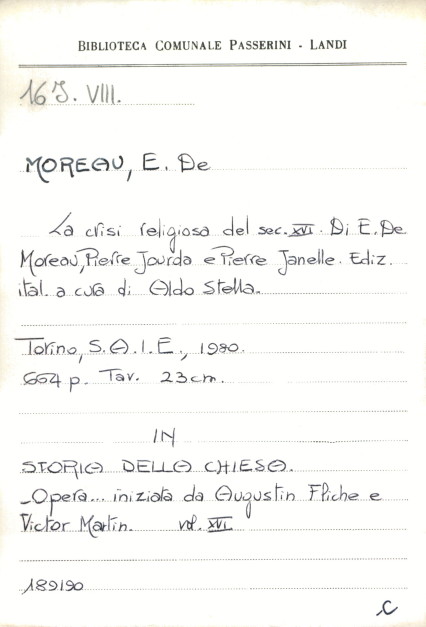 BIBLIOTECA COMUNALE PASSERINI - LANDI
16 J. VIII.
MOREAU, E. De
La crisi religiosa del sec. XVI. Di E. De
Moreau, Pierre Jourda e Pierre Janelle. Ediz.
ital. a cura di Aldo Stella.
Torino, S.A.I.E., 1980.
664 p. Tav. 23 cm.
IN
STORIA DELLA CHIESA.
- Opera... iniziata da Augustin Fliche e
Victor Martin. vol. XVI
189190
C